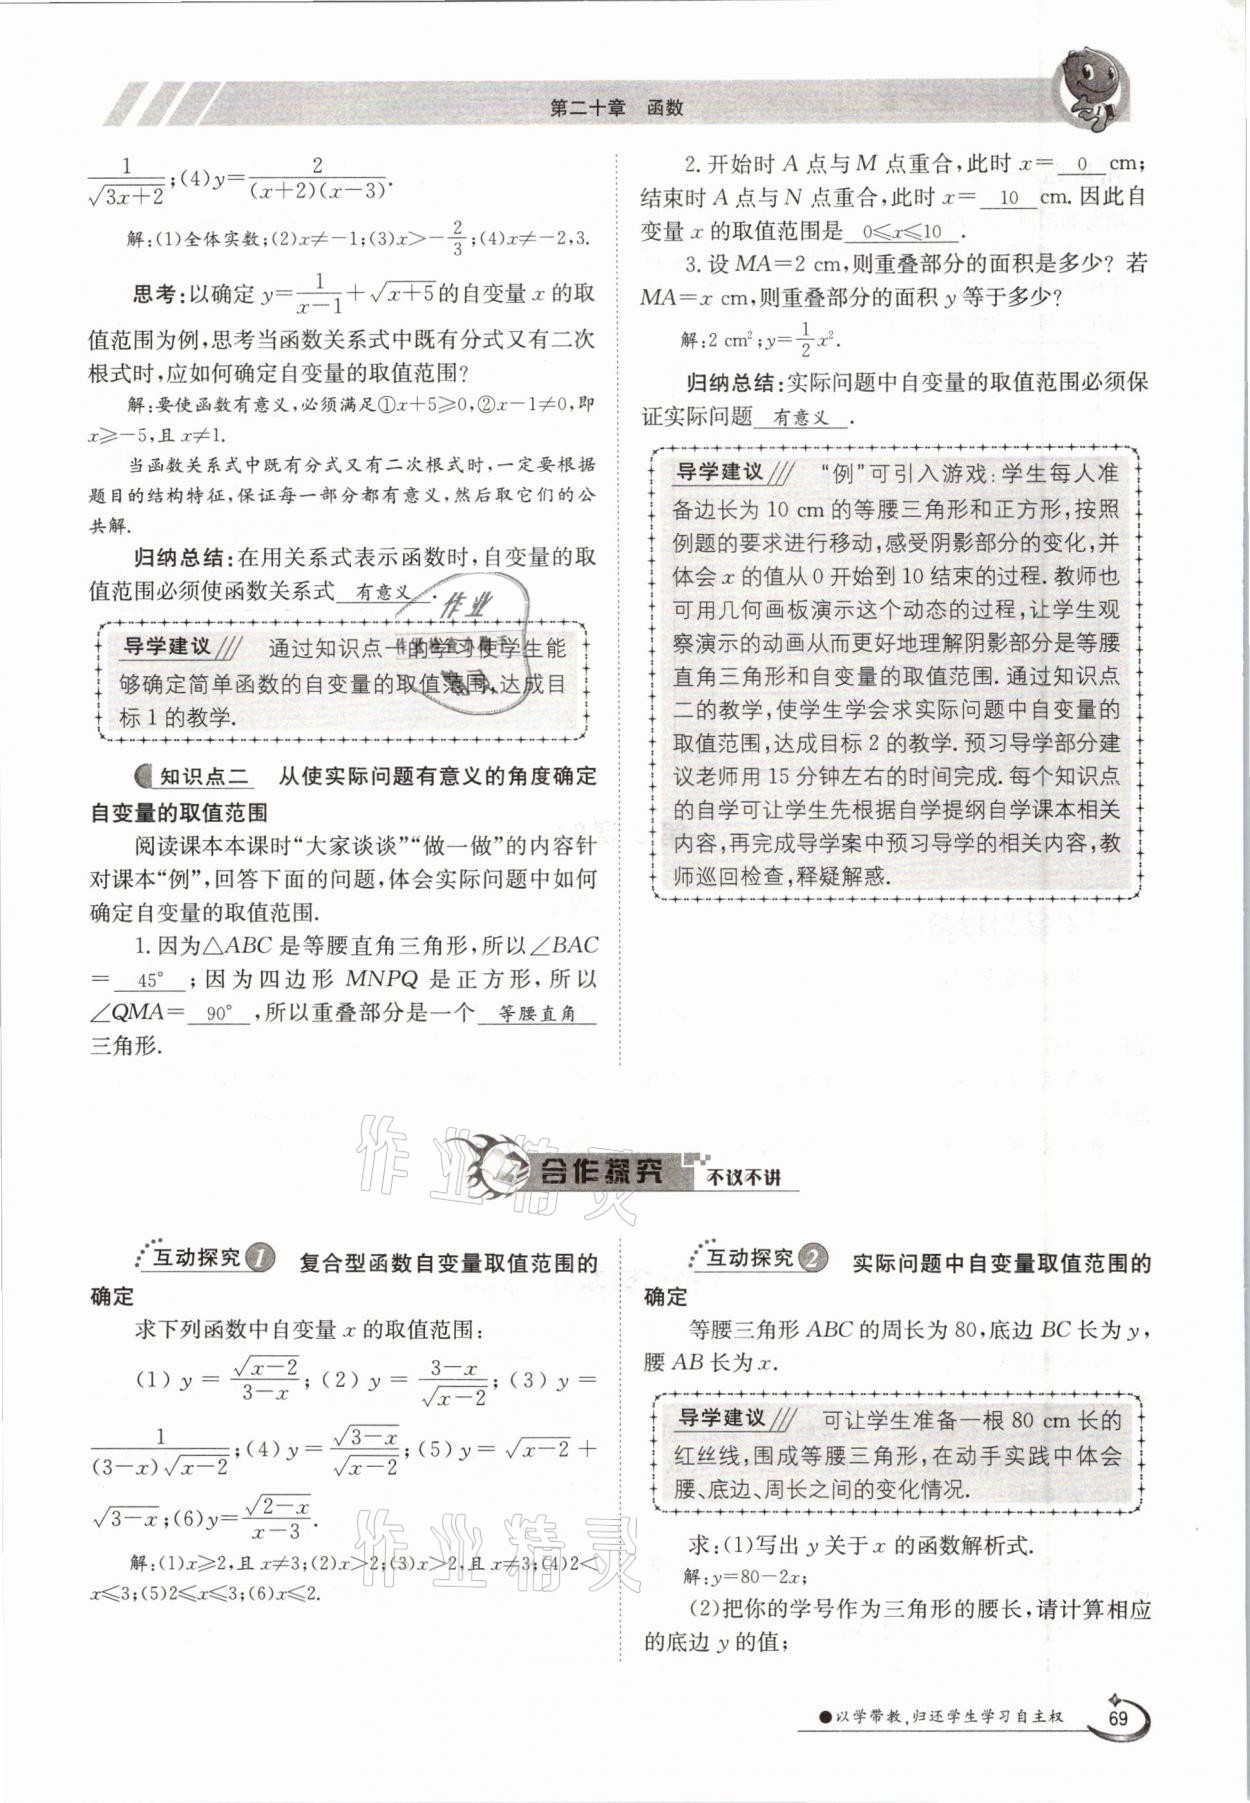 第二十章 函数
1/√(3x+2);(4)y=2/((x+2)(x-3)).
解:(1)全体实数;(2)x≠-1;(3)x>-2/3;(4)x≠-2,3.
思考:以确定 y=1/(x-1)+√(x+5)的自变量 x 的取
值范围为例,思考当函数关系式中既有分式又有二次
根式时,应如何确定自变量的取值范围?
解:要使函数有意义,必须满足①x+5⩾0,②x-1≠0,即
x⩾-5,且 x≠1.
当函数关系式中既有分式又有二次根式时,一定要根据
题目的结构特征,保证每一部分都有意义,然后取它们的公
共解.
归纳总结:在用关系式表示函数时,自变量的取
值范围必须使函数关系式 有意义 .
导学建议/// 通过知识点一的学习使学生能
够确定简单函数的自变量的取值范围,达成目
标 1 的教学.
知识点二 从使实际问题有意义的角度确定
自变量的取值范围
阅读课本本课时“大家谈谈”“做一做”的内容针
对课本“例”,回答下面的问题,体会实际问题中如何
确定自变量的取值范围.
1.因为△ABC 是等腰直角三角形,所以∠BAC
= 45° ;因为四边形 MNPQ 是正方形,所以
∠QMA= 90° ,所以重叠部分是一个 等腰直角
三角形.
2.开始时 A 点与 M 点重合,此时 x= 0 cm;
结束时 A 点与 N 点重合,此时 x= 10 cm.因此自
变量 x 的取值范围是 0⩽x⩽10 .
3.设 MA=2 cm,则重叠部分的面积是多少?若
MA=x cm,则重叠部分的面积 y 等于多少?
解:2 cm²;y=1/2x².
归纳总结:实际问题中自变量的取值范围必须保
证实际问题 有意义 .
导学建议/// “例”可引入游戏:学生每人准
备边长为 10 cm 的等腰三角形和正方形,按照
例题的要求进行移动,感受阴影部分的变化,并
体会 x 的值从 0 开始到 10 结束的过程.教师也
可用几何画板演示这个动态的过程,让学生观
察演示的动画从而更好地理解阴影部分是等腰
直角三角形和自变量的取值范围.通过知识点
二的教学,使学生学会求实际问题中自变量的
取值范围,达成目标 2 的教学.预习导学部分建
议老师用 15 分钟左右的时间完成.每个知识点
的自学可让学生先根据自学提纲自学课本相关
内容,再完成导学案中预习导学的相关内容,教
师巡回检查,释疑解惑.
合作探究 不议不讲
互动探究 1 复合型函数自变量取值范围的
确定
求下列函数中自变量 x 的取值范围:
(1) y = √(x-2)/(3-x); (2) y = (3-x)/√(x-2); (3) y =
1/((3-x)√(x-2));(4) y=√(3-x)/√(x-2);(5) y= √(x-2) +
√(3-x);(6)y=√(2-x)/(x-3).
解:(1)x⩾2,且 x≠3;(2)x>2;(3)x>2,且 x≠3;(4)2<
x⩽3;(5)2⩽x⩽3;(6)x⩽2.
互动探究 2 实际问题中自变量取值范围的
确定
等腰三角形 ABC 的周长为 80,底边 BC 长为 y,
腰 AB 长为 x.
导学建议/// 可让学生准备一根 80 cm 长的
红丝线,围成等腰三角形,在动手实践中体会
腰、底边、周长之间的变化情况.
求:(1)写出 y 关于 x 的函数解析式.
解:y=80-2x;
(2)把你的学号作为三角形的腰长,请计算相应
的底边 y 的值;
●以学带教,归还学生学习自主权
69
作业精灵
作业精灵